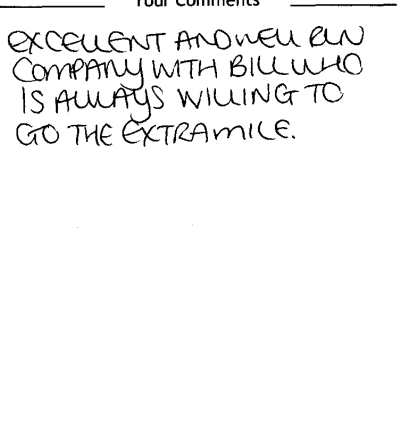 Your Comments
EXCELLENT AND WELL RUN
COMPANY WITH BILL WHO
IS ALWAYS WILLING TO
GO THE EXTRA MILE.